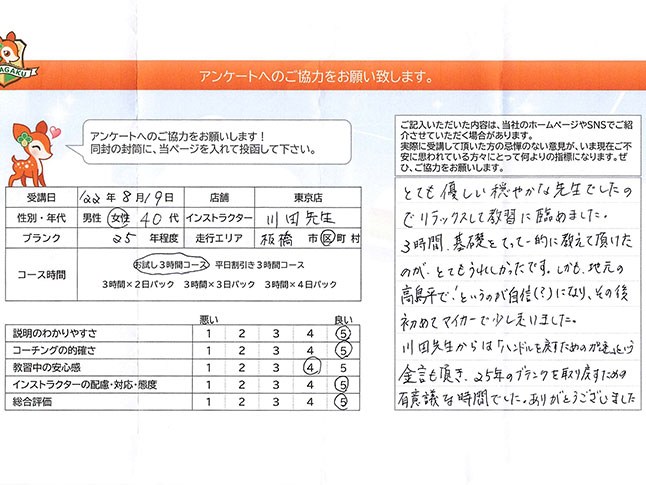 AGAKU
アンケートへのご協力をお願い致します。
アンケートへのご協力をお願いします!
同封の封筒に、当ページを入れて投函して下さい。
受講日 '22年 8月19日 店舗 東京店
性別・年代 男性 女性 40代 インストラクター 川田先生
ブランク 25年程度 走行エリア 板橋 市区町村
コース時間 お試し3時間コース 平日割引き3時間コース
3時間×2日パック 3時間×3日パック 3時間×4日パック
悪い 良い
説明のわかりやすさ 1 2 3 4 5
コーチングの的確さ 1 2 3 4 5
教習中の安心感 1 2 3 4 5
インストラクターの配慮・対応・態度 1 2 3 4 5
総合評価 1 2 3 4 5
ご記入いただいた内容は、当社のホームページやSNSでご紹
介させていただく場合があります。
実際に受講して頂いた方の忌憚のない意見が、いま現在ご不
安に思われている方々にとって何よりの指標になります。ぜ
ひ、ご協力をお願いします。
とても優しい穏やかな先生でしたの
でリラックスして教習に臨めました。
3時間、基礎をてって一的に教えて頂けた
のが、とてもうれしかったです。しかも、地元の
高島平で!というのが自信(?)になり、その後
初めてマイカーで少し走りました。
川田先生からは「ハンドルを戻すための
という
金言も頂き、25年のブランクを取り戻すための
有意議な時間でした。ありがとうございました